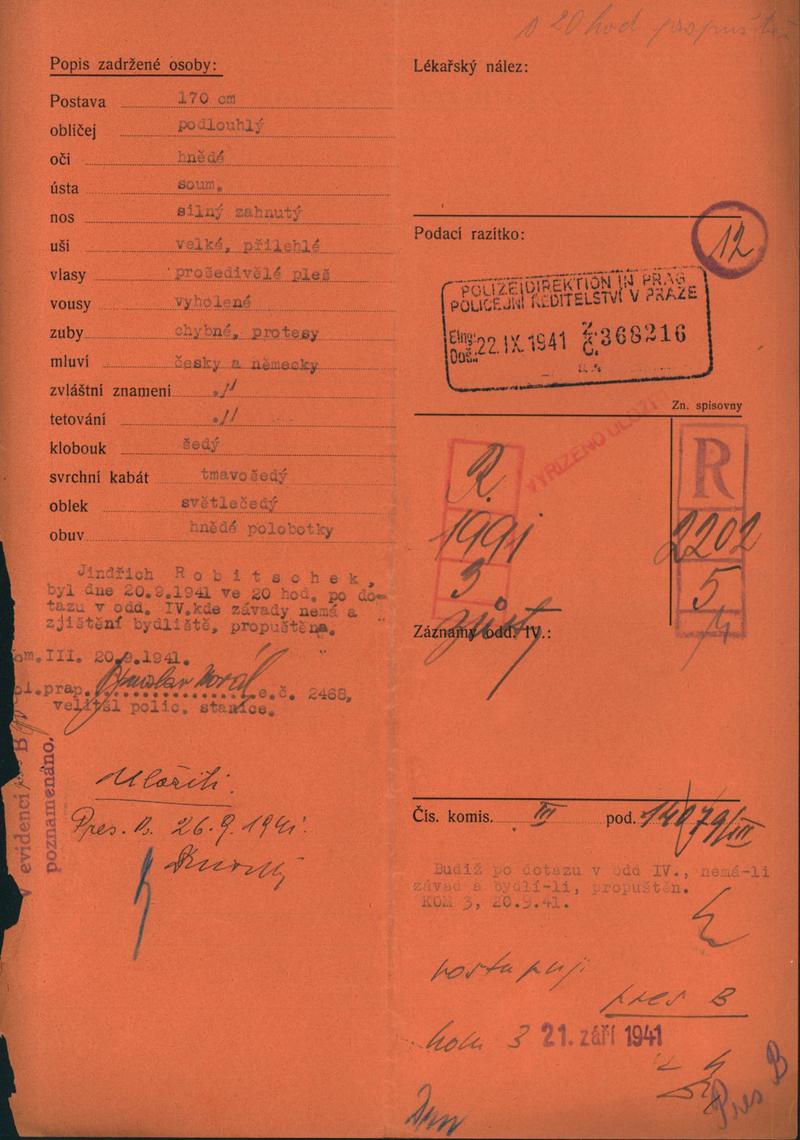 v 20 hod propuštěn
Popis zadržené osoby:
Postava 170 cm
obličej podlouhlý
oči hnědé
ústa soum.
nos silný zahnutý
uši velké, přilehlé
vlasy prošedivělé pleš
vousy vyholené
zuby chybné, protesy
mluví česky a německy
zvláštní znamení ./'
tetování ./'
klobouk šedý
svrchní kabát tmavošedý
oblek světlečedý
obuv hnědé polobotky
Jindřich Robitschek,
byl dne 20.9.1941 ve 20 hod. po do-
tazu v odd. IV.kde závady nemá a
zjištění bydliště, propuštěna.
om.III. 20.9.1941.
ol.prap. e.č. 2468,
velitel polic. stanice.
V evidenci B
poznamenáno.
Uložiti.
Pres. B. 26.9.1941.
Lékařský nález:
Podací razítko:
12
POLIZEIDIREKTION IN PRAG
POLICEJNÍ ŘEDITELSTVÍ V PRAZE
Eing.
Doš. 22.IX.1941 Z.
Č. 368216
Zn. spisovny
VYŘÍZENO ULOŽIT
R
1991
3
R
2202
5
Záznamy odd. IV.:
Čís. komis. III pod. 14079/III
Budiž po dotazu v odd IV., nemá-li
závad a bydlí-li, propuštěn.
KOM 3, 20.9.41.
postupuji
pres B
kom 3 21. září 1941
Pres B